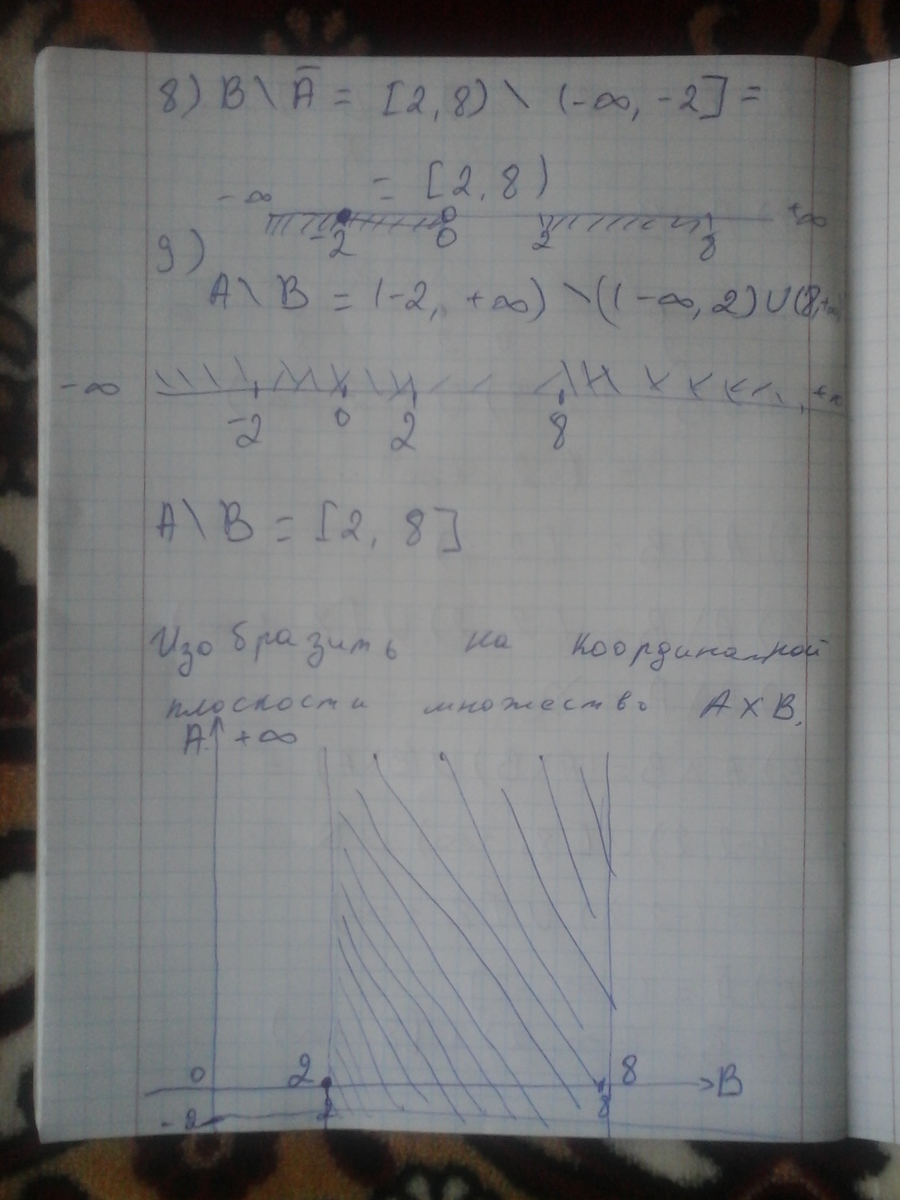 8) B \ Ā = [2, 8) \ (-∞, -2] =
= [2, 8)
-∞ -2 0 2 8 +∞
9)
A \ B = (-2, +∞) \ ((-∞, 2) ∪ (8, +∞)
-∞ -2 0 2 8
A \ B = [2, 8]
Изобразить на координатной
плоскости множество A X B.
A +∞
0 2 8 B
2 8
-2